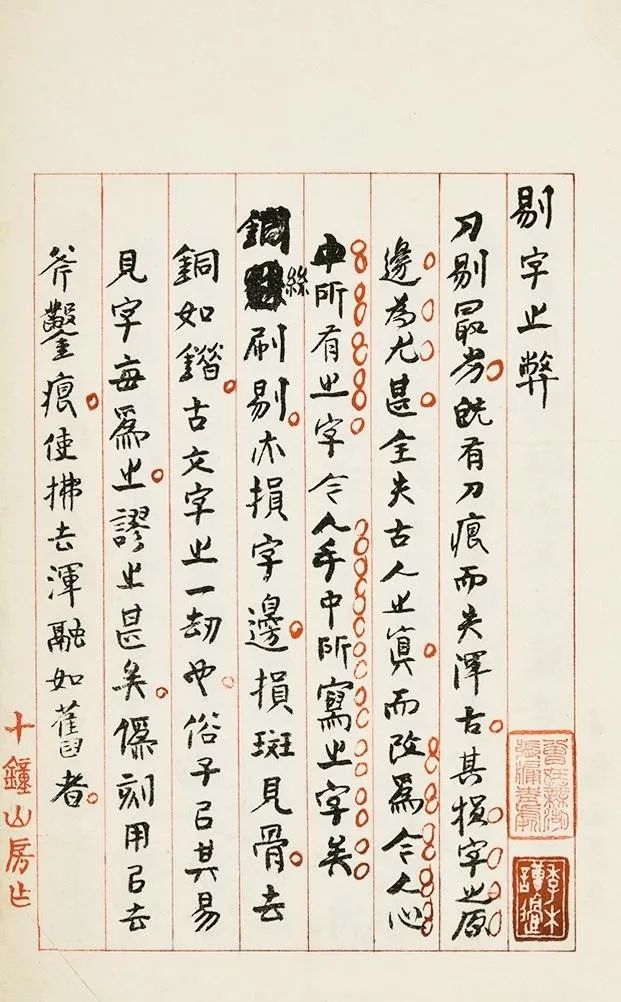 剔字之弊
刀剔最劣既有刀痕而失渾古其損字之原
邊為尤甚全失古人之真而改為今人心
中所有之字今人手中所寫之字矣
銅絲刷剔亦損字邊損斑見骨去
銅如鐕古文字之一劫也俗子以其易
見字每為之謬之甚矣僞刻用以去
斧鑿痕使拂去渾融如舊者
十鐘山房